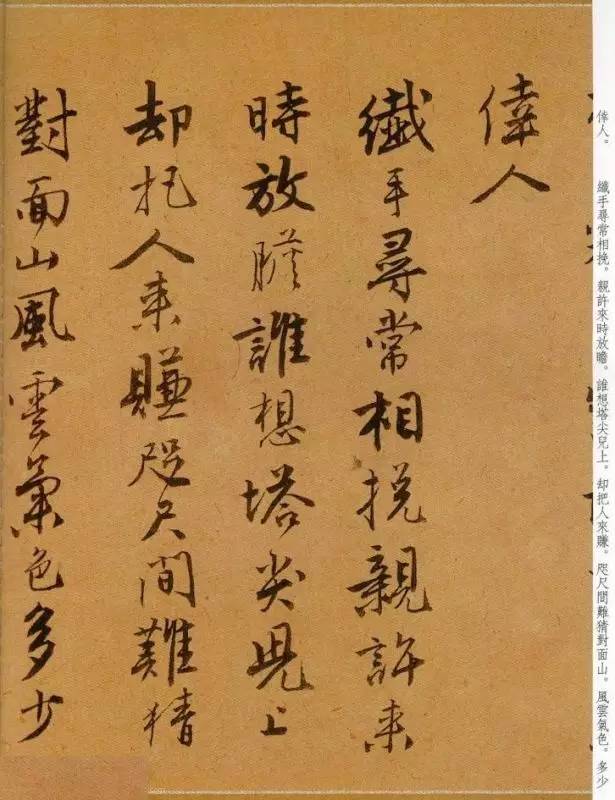 偉人。 纖手尋常相挽。親許來時放膽。誰想塔尖兒上。却把人來賺。咫尺間難猜對面山。風雲氣色。多少
偉人
纖手尋常相挽親許来
時放膽誰想塔尖兒上
却把人来賺咫尺間難猜
對面山風雲氣色多少